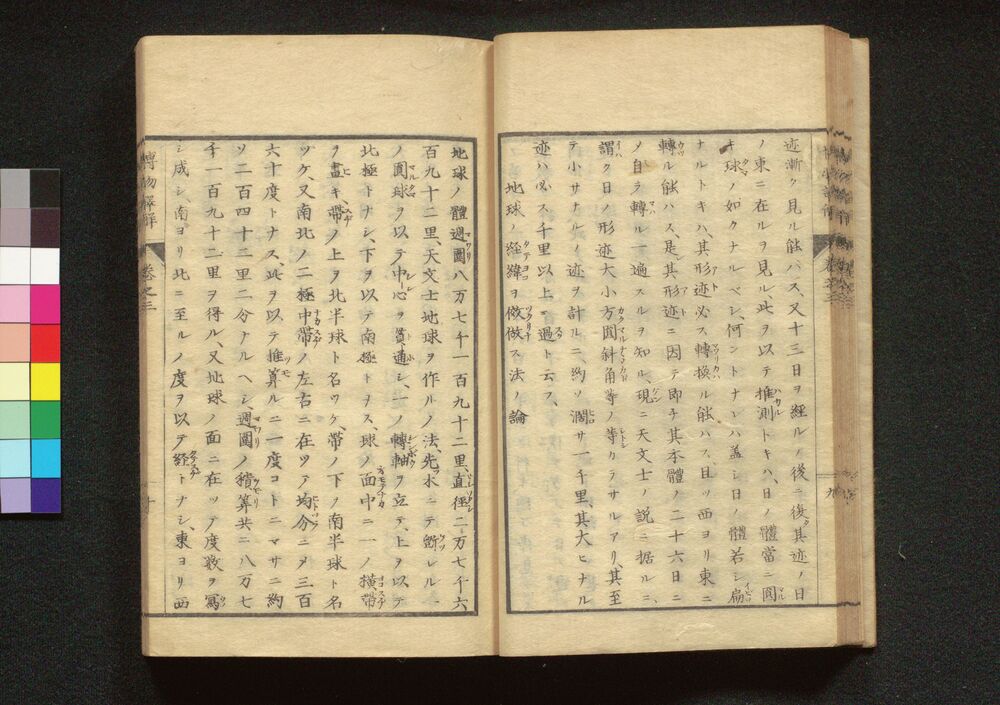 迹漸ク見ル能ハス、又十三日ヲ經ルノ後ニ復其迹ノ日
ノ東ニ在ルヲ見ル、此ヲ以テ推測トキハ、日ノ體當ニ圓
キ球ノ如クナルベシ、何ントナレハ蓋シ日ノ體若シ扁
ナルトキハ、其形迹必ス轉換ル能ハス、且ツ西ヨリ東ニ
轉ル能ハス、是其形迹ニ因テ即チ其本體ノ二十六日ニ
ノ自ラ轉ルー遍スルヲ知ル、現ニ天文士ノ説ニ据ルニ、
謂ク日ノ形迹大小方圓斜角等ノ等クラサルアリ、其至
テ小サナルノ迹ヲ計ルニ、約ソ濶サ一千里、其大ヒナル
迹ハ必ス千里以上ニ過ト云フ、
地球ノ経緯ヲ倣做スル法ノ論
九
地球ノ體週圍八万七千一百九十二里、直徑二万七千六
百九十二里、天文士地球ヲ作ルノ法、先ツ木ニテ斲レルー
ノ圓球ヲ以テ中心ヲ貫通シ、一ノ轉軸ヲ立テ、上ヲ以テ
北極トナシ、下ヲ以テ南極トス、球ノ面中ニ一ノ横帶
ヲ畫キ、帶ノ上ヲ北半球ト名ツケ、帶ノ下ノ南半球ト名
ヅケ、又南北ノ二極中帶ノ左右ニ在ツテ均分ニメ三百
六十度トナス、此ヲ以テ推算ルニ一度コトニマサニ約
ソ二百四十二里二分ナルヘシ、週圍ノ積算共ニ八万七
千一百九十二里ヲ得ル、又地球ノ面ニ在ツテ度數ヲ寫
シ成シ、南ヨリ北ニ至ルノ度ヲ以テ経トナシ、東ヨリ西
博物
解
巻之三
十